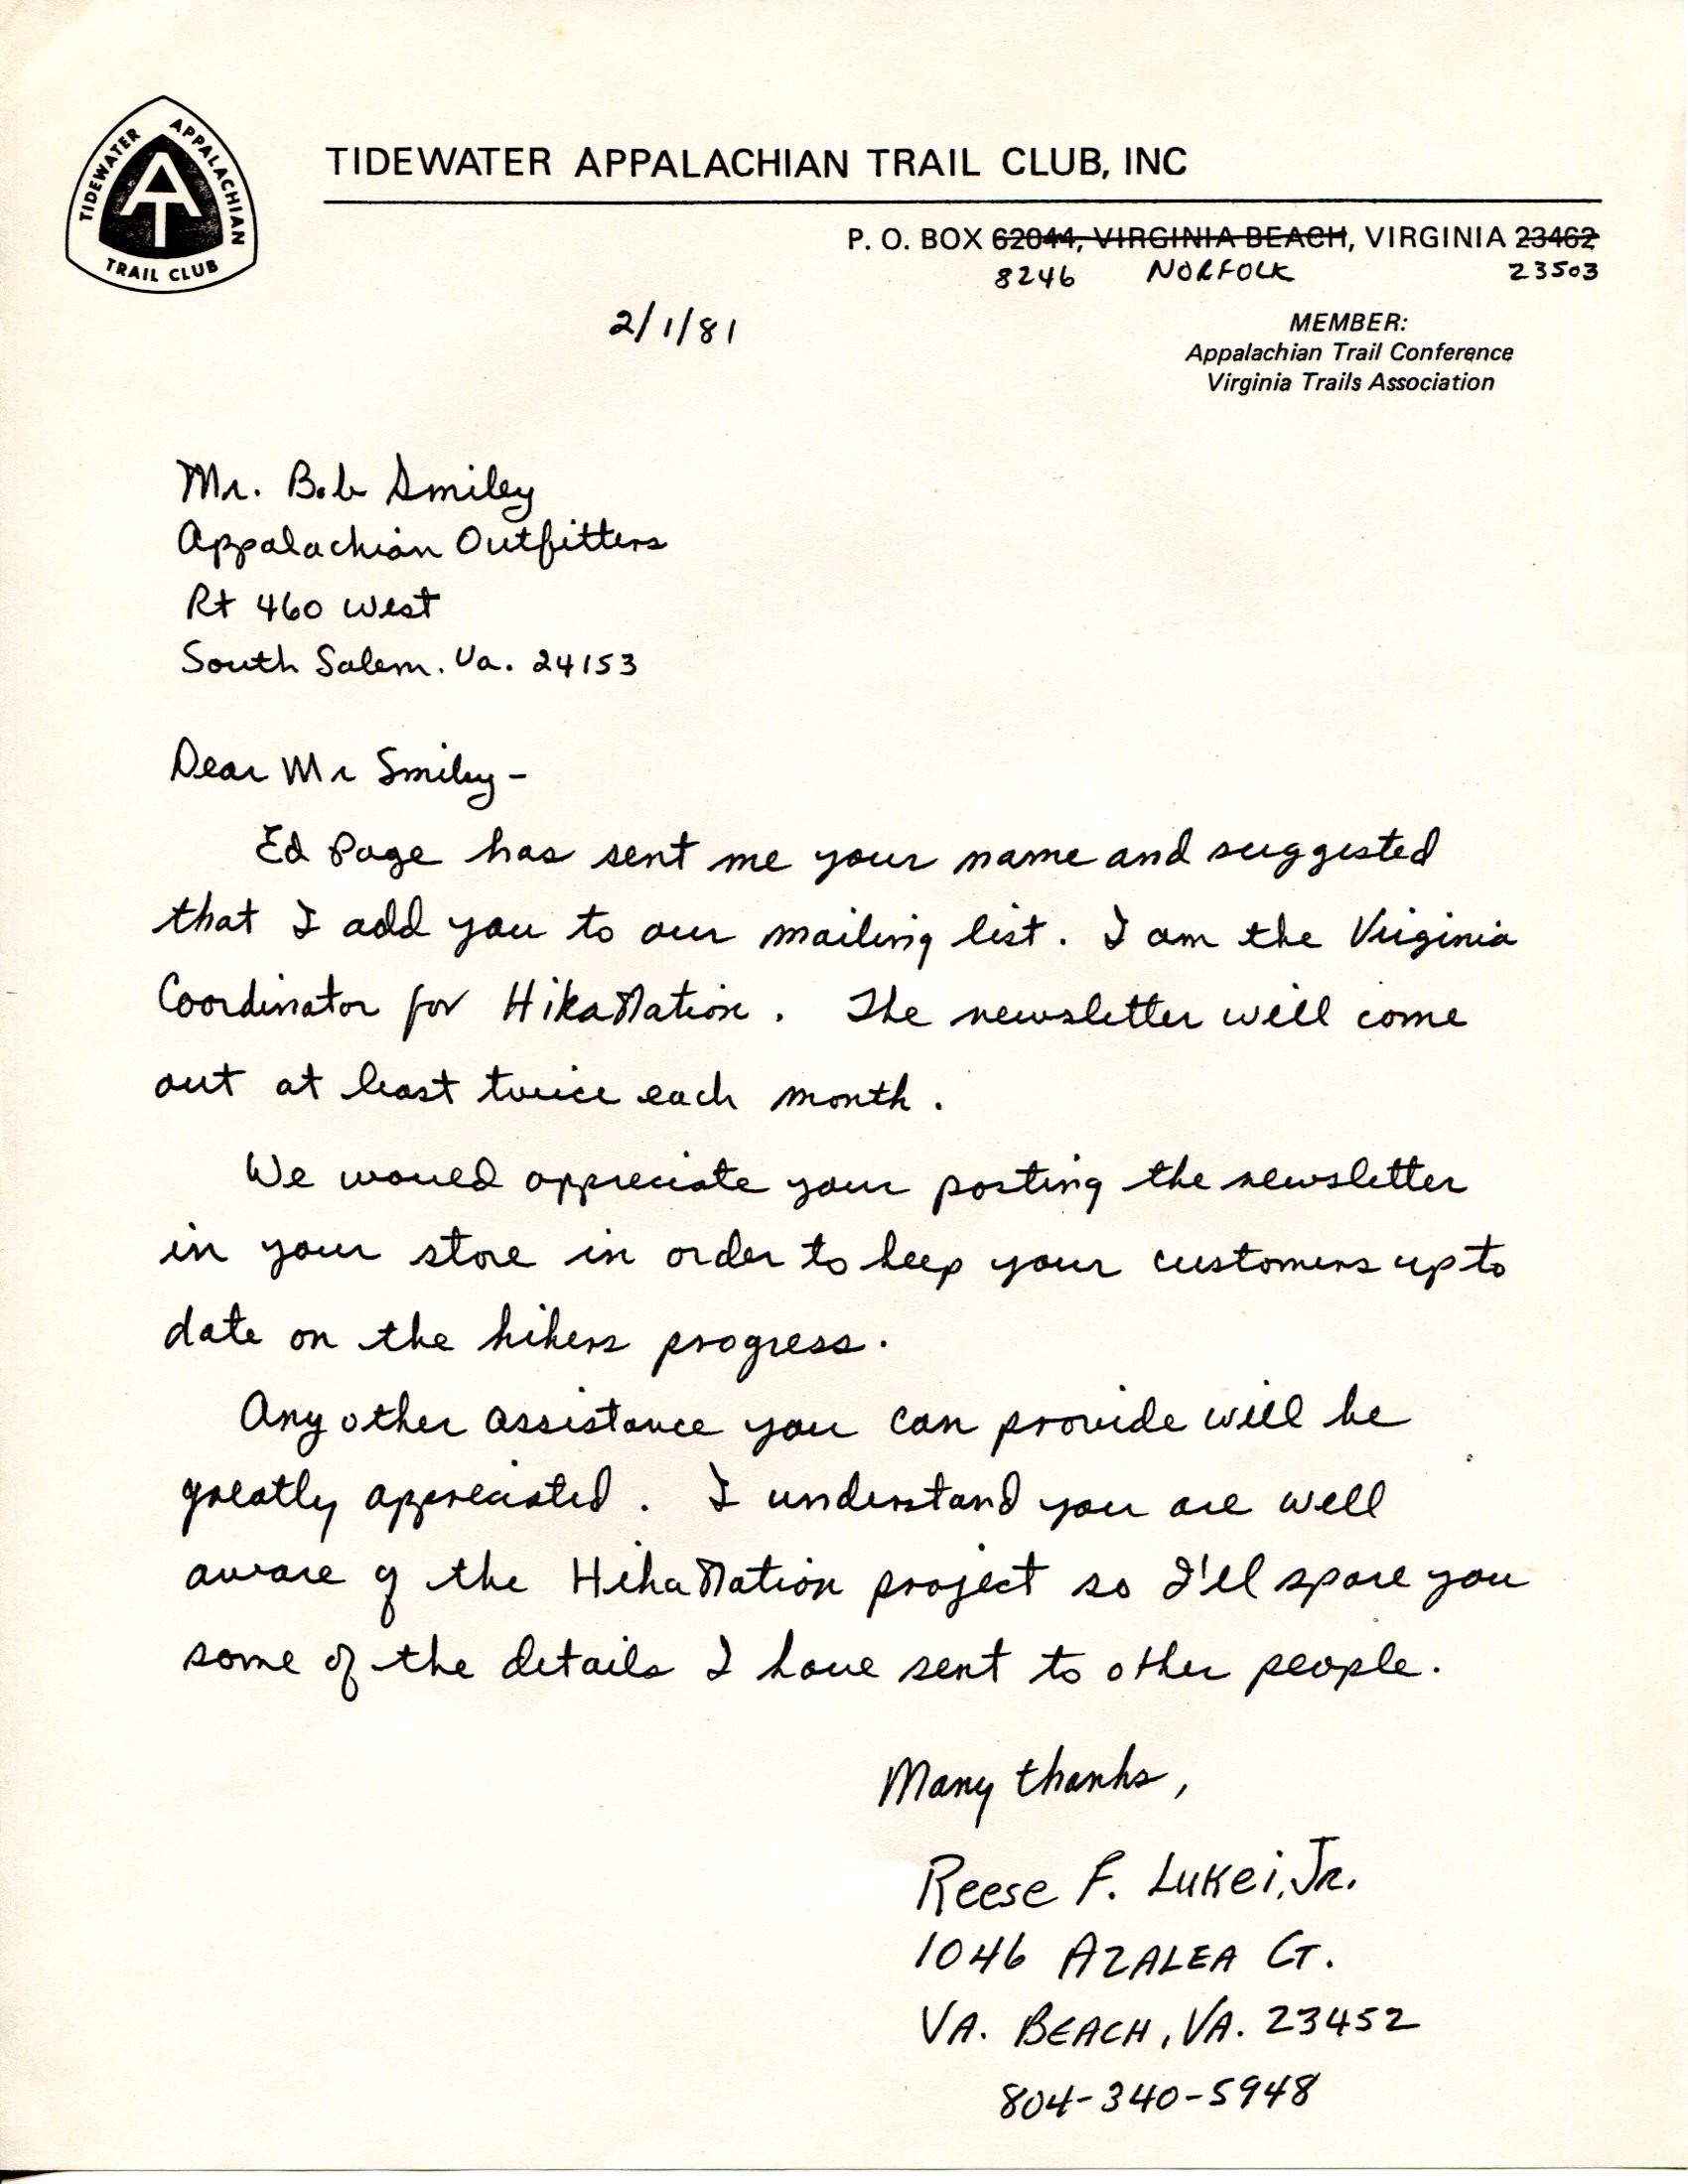 TIDEWATER APPALACHIAN
TRAIL CLUB
TIDEWATER APPALACHIAN TRAIL CLUB, INC
P. O. BOX 62044, VIRGINIA BEACH, VIRGINIA 23462
8246 NORFOLK 23503
2/1/81
MEMBER:
Appalachian Trail Conference
Virginia Trails Association
Mr. Bob Smiley
Appalachian Outfitters
Rt 460 West
South Salem. Va. 24153
Dear Mr Smiley-
Ed Page has sent me your name and suggested
that I add you to our mailing list. I am the Virginia
Coordinator for HikaNation. The newsletter will come
out at least twice each month.
We would appreciate your posting the newsletter
in your store in order to keep your customers up to
date on the hikers progress.
Any other assistance you can provide will be
greatly appreciated. I understand you are well
aware of the HikaNation project so I'll spare you
some of the details I have sent to other people.
Many thanks,
Reese F. Lukei, Jr.
1046 AZALEA CT.
VA. BEACH, VA. 23452
804-340-5948